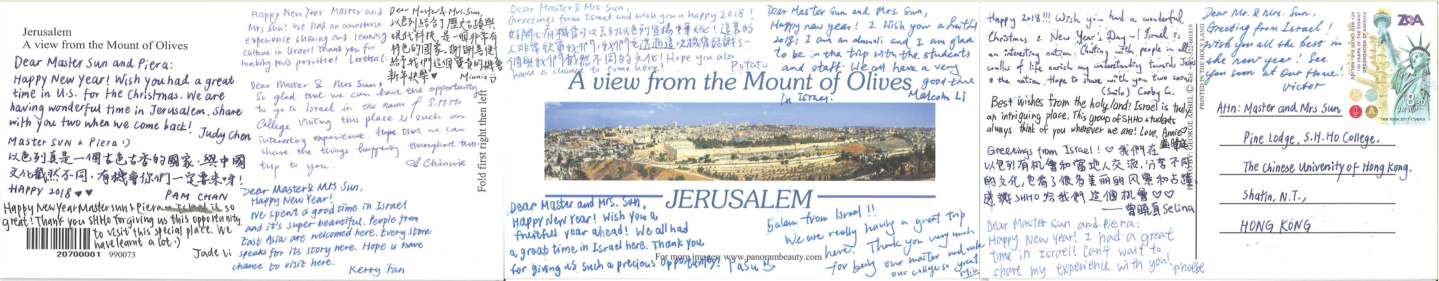 Jerusalem
A view from the Mount of Olives
Dear Master Sun and Piera:
Happy New Year! Wish you had a great
time in U.S. for the Christmas. We are
having wonderful time in Jerusalem. Share
with you two when we come back! Judy Chen
Master SUN & Piera :)
以色列真是一個古色古香的國家,與中國
文化截然不同,有機會你們一定要來呀!
HAPPY 2018 ♥♥ PAM CHAN
Happy New Year Master sun & Piera
great! Thank you SHHo for giving us this opportunity
to visit this special place. We
have learnt a lot :)
Jade Li
20700001 990073
Happy New Year Master and
Mrs Sun! We had an awesome
experience sharing and learning
culture in Israel! Thank you for
making this possible!
Dear Master & Mrs Sun,
So glad that we can have the opportunity
to go to Israel in the name of S.H.Ho
College. Visiting this place is such an
interesting experience. Hope that we can
share the things happening throughout this
trip to you.
Chinnie
Dear Master & Mrs Sun,
Happy New Year!
We spent a good time in Israel
and it's super beautiful. People from
East Asia are welcomed here. Every stone
speaks for its story here. Hope u have
chance to visit here.
Kerry Fan
Dear Master & Mrs Sun,
以色列結合了歷史古蹟與
現代科技,是一個非常有
特色的國家,謝謝書院
給予我們這個寶貴的機會
新年快樂♥ Minnie
Fold first right then left
Dear Master & Mrs Sun,
Greetings from Israel and wish you a happy 2018!
Hope you also
have a chance to come here! Potato
Dear Master Sun and Mrs. Sun,
Happy new year! I wish you a fruitful
2018! I am an alumni and I am glad
to be in the trip with the students
and staff. We all have a very
good time
in Israel. Malcolm Li
A view from the Mount of Olives
JERUSALEM
Dear Master and Mrs. Sun,
Happy New Year! Wish you a
fruitful year ahead! We all had
a great time in Israel here. Thank you
for giving us such a precious opportunity! Pasu
Salam from Israel!!
We are really having a great trip
here. Thank you very much
for being our master and make
our college so great
For more images: www.panorambeauty.com
Happy 2018!!! Wish you had a wonderful
Christmas & New Year's Day~! Israel is
an interesting nation. Chatting with people in all
walks of life enrich my understanding towards Jews
& the nation. Hope to share with you two soon :)
(Smile) Corby C.
Best wishes from the holy land! Israel is truly
an intriguing place. This group of SHHO students
always think of you wherever we are! Love, Annie
Greetings from Israel! ♡ 我們在
以色列有机會和當地人交流,分享不同
的文化,也看了很多美丽的风景和古蹟
感謝SHHO 给我們這個机會♡♡
Selina
Dear Master Sun and Piera:
Happy New Year! I had a great
time in Israel! Can't wait to
share my experience with you! phoebe
PRINTED IN THE HOLY LAND
Dear Mr. & Mrs. Sun,
Greeting from Israel!
Wish you all the best in
the new year! See
you soon at Our House!
Victor
Attn: Master and Mrs Sun
Pine Lodge, S.H. Ho College.
The Chinese University of Hong Kong.
Shatin, N.T.,
HONG KONG